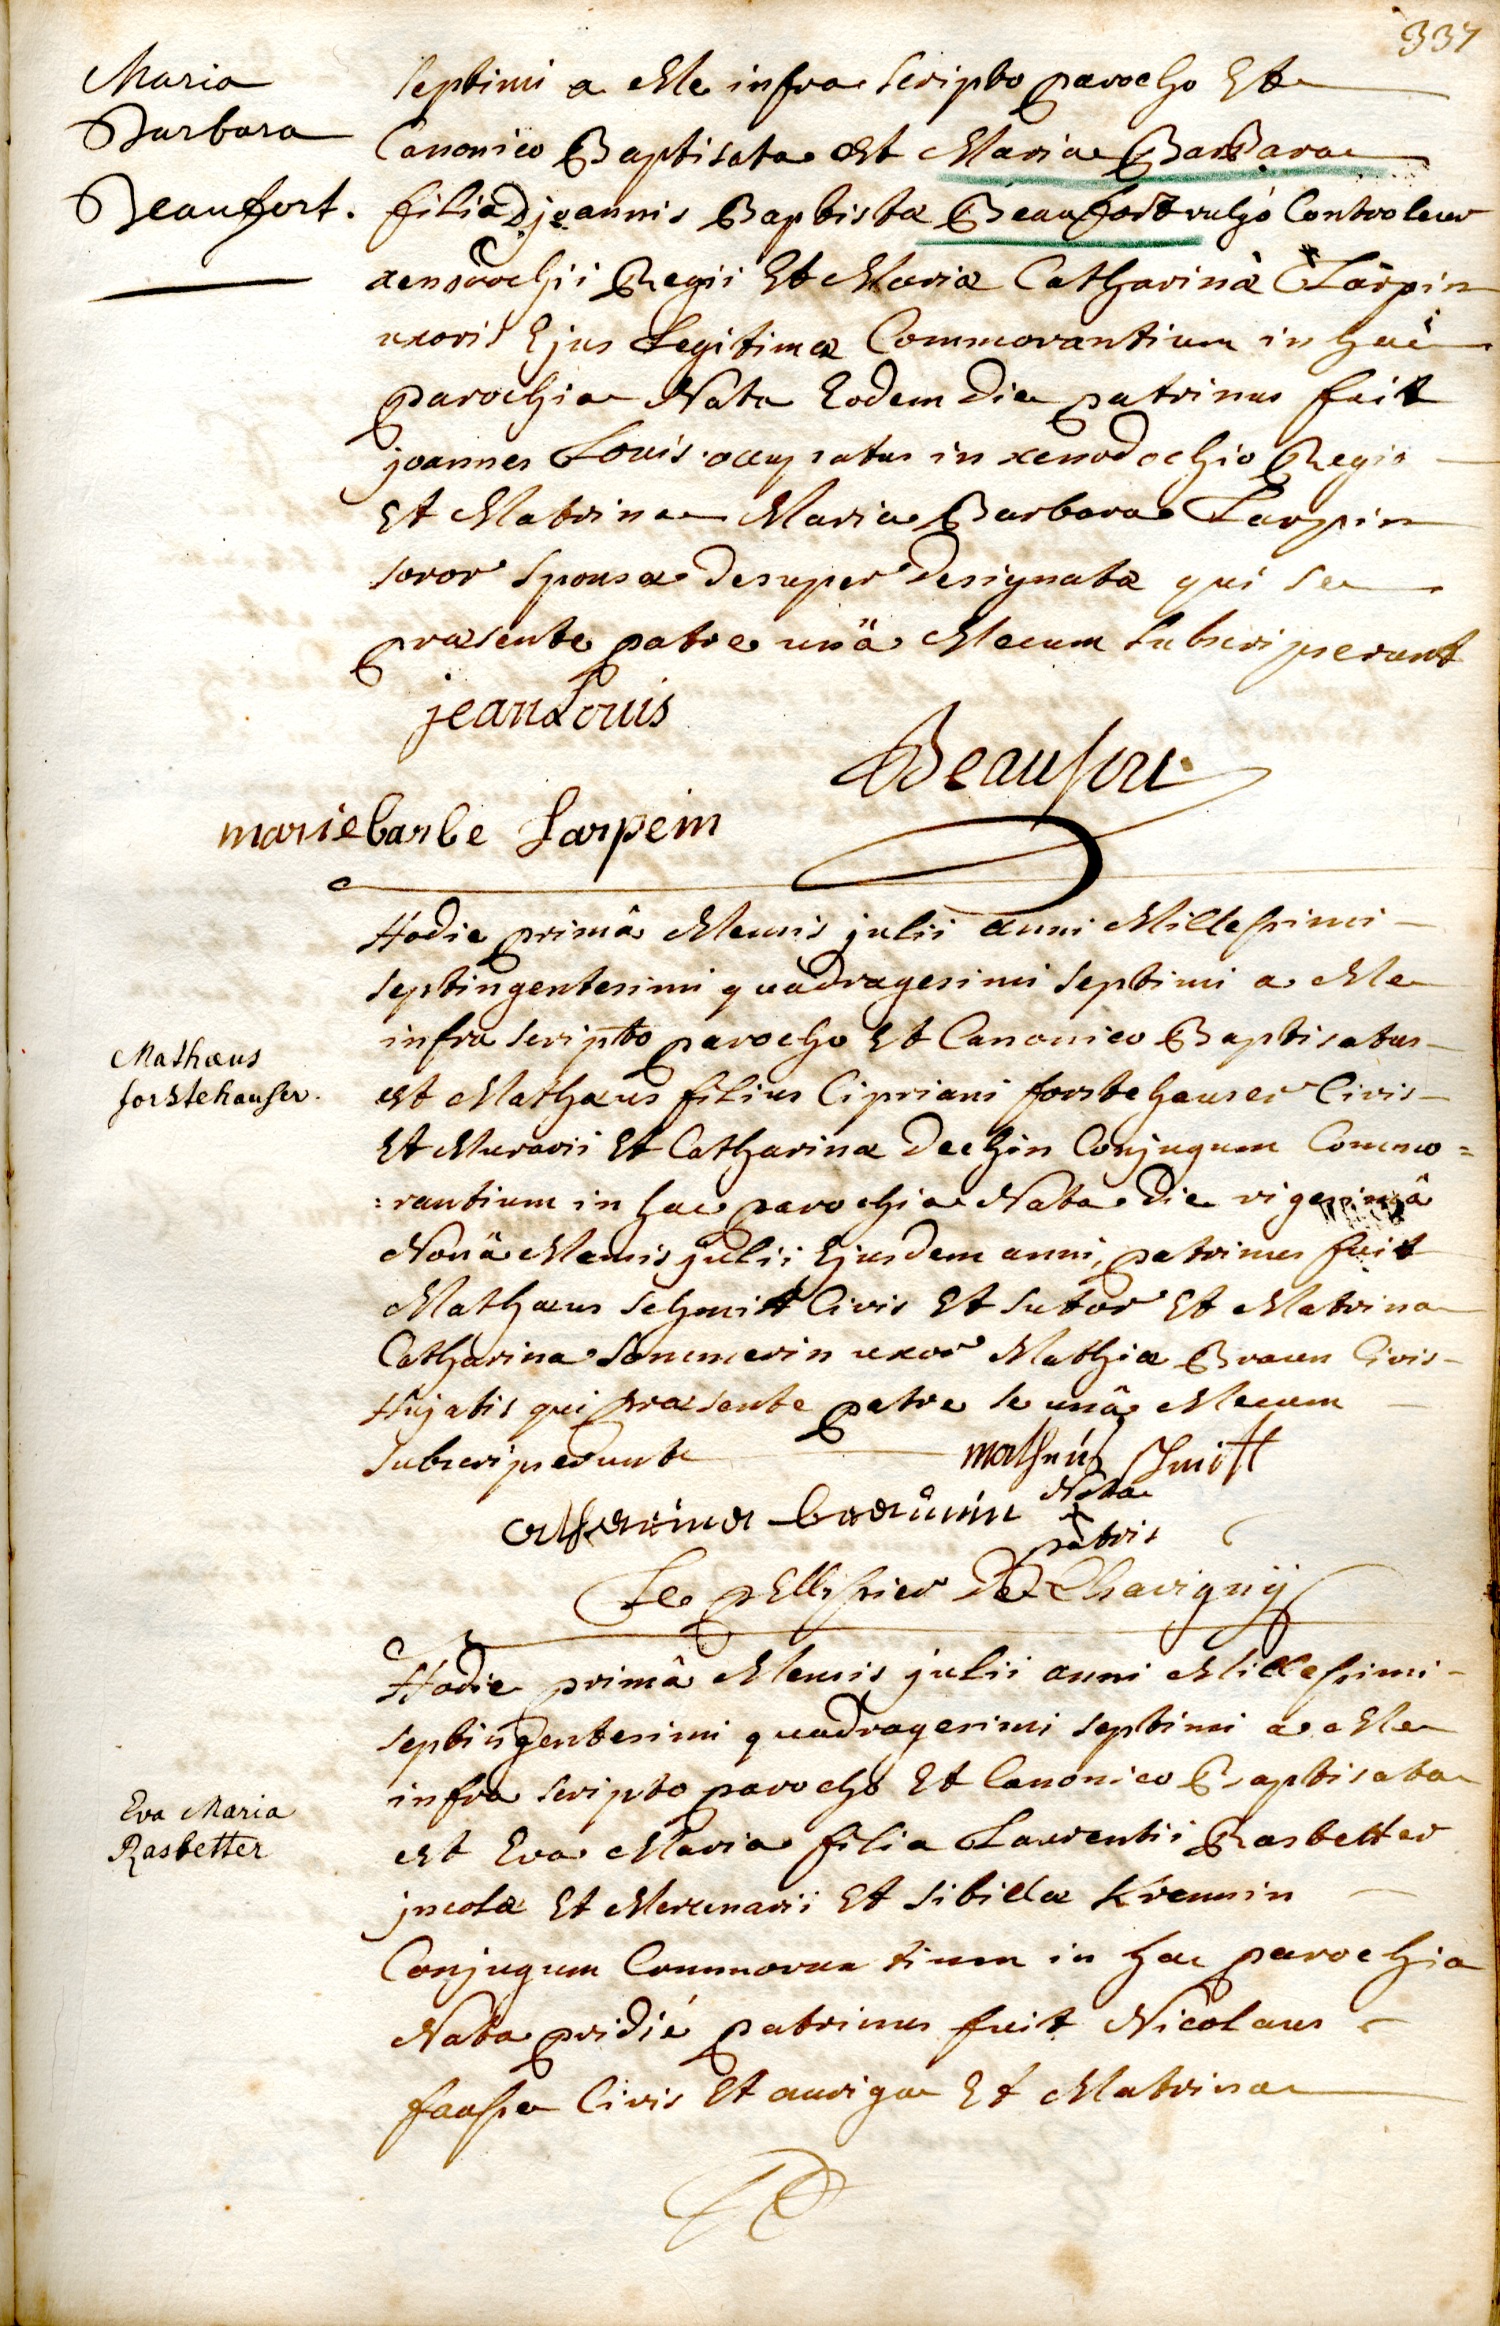 337
Maria
Barbara
Beaufort.
septimi a Me infra scripto parocho Et
Canonico Baptisata est Maria Barbara
filia D joannis Baptistæ Beaufort vulgó Controleur
xenodochii Regii Et Mariæ Catharinæ Larpin
uxoris Ejus Legitimæ Commorantium in hac
parochia Nata Eodem Die patrinus fuit
joannes Louis occupatus in xenodochio Regio
Et Matrina Maria Barbara Larpin
soror sponsæ desuper designatæ qui se
præsente patre unâ Mecum subscripserunt
jean Louis
Beaufort
marie barbe Larpein
Hodie primâ Mensis julii anni Millesimi
septingentesimi quadragesimi septimi a Me
infra scripto parocho Et Canonico Baptisatus
Mathæus
forstehauser.
est Mathæus filius Cipriani forstehauser Civis
Et Murarii Et Catharinæ dechin Conjugum Commo=
=rantium in hac parochia Nata die vigesimâ
Nonâ Mensis julii Ejusdem anni, patrinus fuit
Mathæus schmitt Civis Et sutor Et Matrina
Catharina sommerin uxor Mathiæ Braun Civis
Hujatis qui præsente patre se unâ Mecum
subscripserunt
matheus schmitt
catharina braunin
Nota
+
patris
Le pellissier De Chavigny
Hodie primâ Mensis julii anni Millesimi
septingentesimi quadragesimi septimi a Me
infra scripto parocho Et Canonico Baptisata
Eva Maria
Rasbetter
est Eva Maria filia Laurentii Rasbetter
jncolæ Et Mercenarii Et sibillæ
Conjugum Commorantium in hac parochia
Nata pridié patrinus fuit Nicolaus
Civis Et auriga Et Matrina